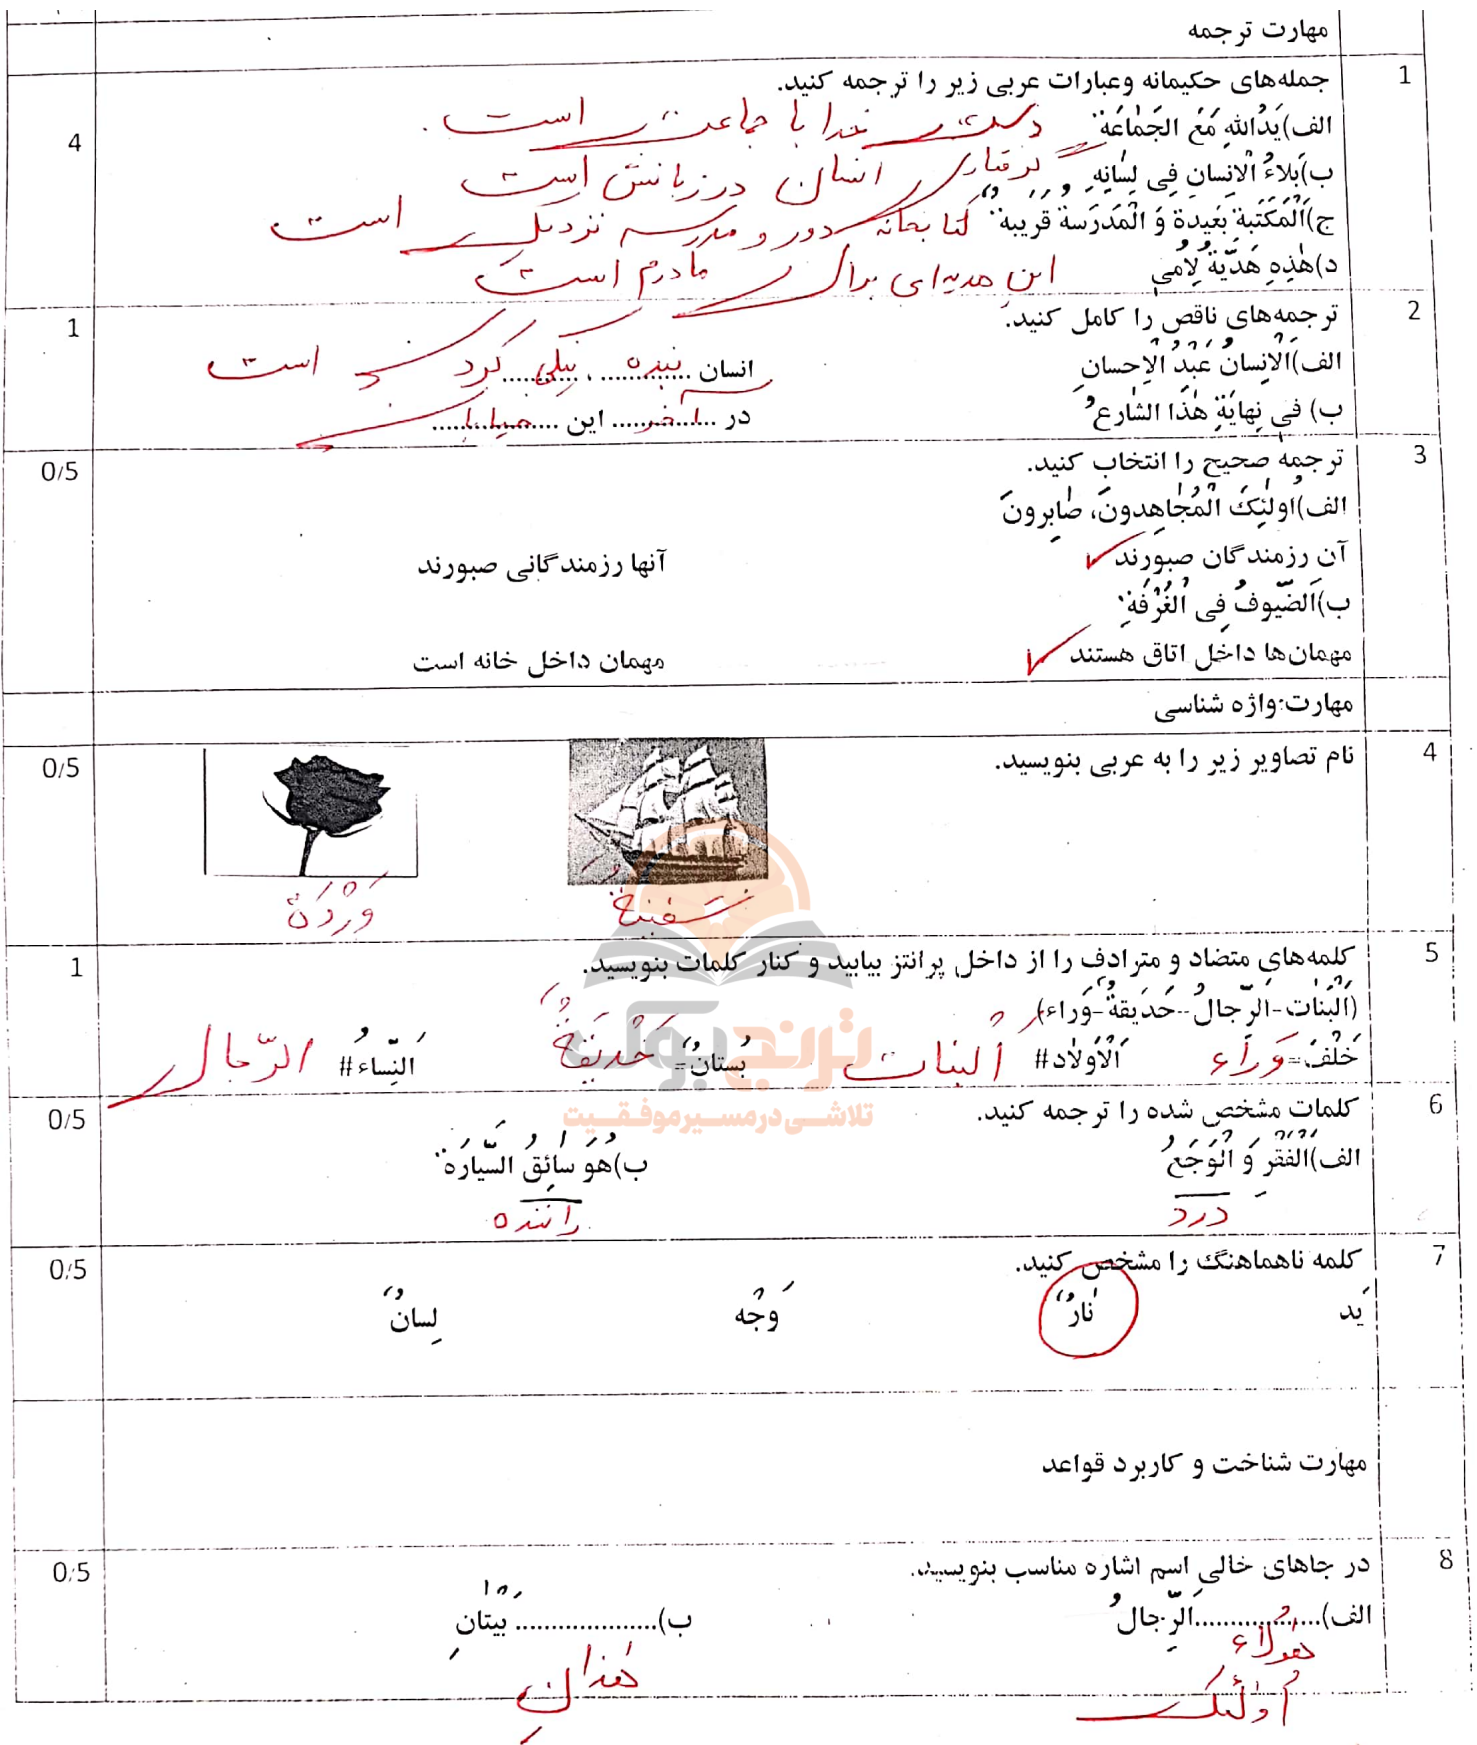 مهارت ترجمه
1 جمله‌های حکیمانه وعبارات عربی زیر را ترجمه کنید. 4
الف)یَدُاللهِ مَعَ الجَمٰاعَة دست خدا با جماعت است.
ب)بَلاءُ الْانسٰانِ فِی لِسٰانِهِ گرفتاری انسان در زبانش است
ج)اَلْمَکتَبة بَعیدة وَ الْمَدرَسة قَریبة کتابخانه دور و مدرسه نزدیک است
د)هٰذِهِ هَدّیَةٌ لِاُمّی این هدیه‌ای برای مادرم است
2 ترجمه‌های ناقص را کامل کنید. 1
الف)اَلْانسانُ عَبْدُ الْاِحسانِ انسان بنده ، نیکی کردن است
ب) فی نِهایَةِ هٰذَا الشارعُ در آخر این خیابان
3 ترجمه صحیح را انتخاب کنید. 0/5
الف)اُولٰئِکَ الْمُجٰاهِدونَ، صٰابِرونَ
آن رزمندگان صبورند ✓ آنها رزمندگانی صبورند
ب)اَلضّیوفُ فِی الْغُرْفَةِ
مهمان‌ها داخل اتاق هستند ✓ مهمان داخل خانه است
مهارت:واژه شناسی
4 نام تصاویر زیر را به عربی بنویسید. 0/5
سَفینةٌ وَرْدَةٌ
5 کلمه‌های متضاد و مترادف را از داخل پرانتز بیابید و کنار کلمات بنویسید. 1
(اَلْبَنٰات-اَلرّجالُ-حَدیقةٌ-وَراء)
خَلْفَ=وَراء اَلْاَولاد# اَلبنات بُستانٌ= حَدیقةٌ اَلنِّساءُ# الرّجال
ترنج بوک
تلاشی در مسیر موفقیت
6 کلمات مشخص شده را ترجمه کنید. 0/5
الف)اَلْفَقْرَ وَ الْوَجَعُ ب)هُوَ سٰائِقُ السَّیارَة
درد راننده
7 کلمه ناهماهنگ را مشخص کنید. 0/5
یَد نٰارٌ وَجْه لِسانٌ
مهارت شناخت و کاربرد قواعد
8 در جاهای خالی اسم اشاره مناسب بنویسید. 0/5
الف)....................اَلرِّجالُ ب).................... بَیْتانِ
هٰؤلاء هٰذانِ
اُولٰئِکَ